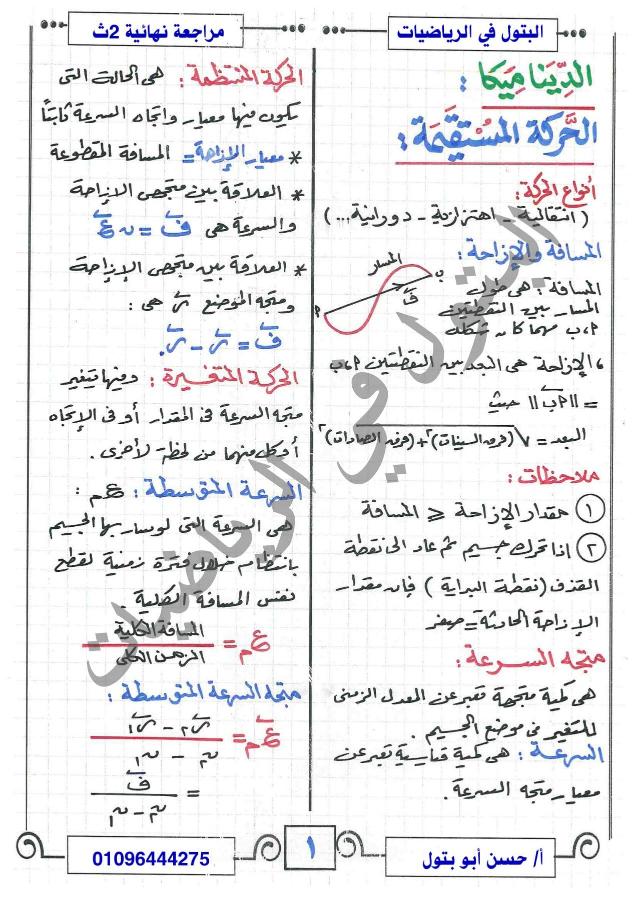 البتول في الرياضيات
مراجعة نهائية 2ث
الدِّينَاميكا :
الحَركة المسْتقيمَة :
أنواع الحركة :
( انتقالية - اهتزازية - دورانية ... )
المسافة والإزاحة :
المسافة : هى طول
المسار بين النقطتين
P ، ب مهما كان شكله
المسار
ف
P
ب
، الإزاحة هى البعد بين النقطتين P ، ب
= || P ب || حيث
البعد = √(فرق السينات)٢ + (فرق الصادات)٢
ملاحظات :
١ مقدار الإزاحة ⩽ المسافة
٢ إذا تحرك جسيم ثم عاد إلى نقطة
القذف ( نقطة البداية ) فإن مقدار
الإزاحة الحادثة = صفر
متجه السرعة :
هى كمية متجهة تعبر عن المعدل الزمنى
للتغير فى موضع الجسيم .
السرعة : هى كمية قياسية تعبر عن
معيار متجه السرعة .
الحركة المنتظمة : هى الحالة التى
يكون فيها معيار واتجاه السرعة ثابتاً
* معيار الإزاحة = المسافة المقطوعة
* العلاقة بين متجهى الإزاحة
والسرعة هى ف = ن ع
* العلاقة بين متجهى الإزاحة
ومتجه الموضع ر هى :
ف = ر - ر.
الحركة المتغيرة : وفيها يتغير
متجه السرعة فى المقدار أو فى الإتجاه
أو كل منهما من لحظة لأخرى .
السرعة المتوسطة : ع م :
هى السرعة التى لو سار بها الجسيم
بانتظام خلال فترة زمنية لقطع
نفس المسافة الكلية
ع م = المسافة الكلية / الزمن الكلى
متجه السرعة المتوسطة :
ع م = ر٢ - ر١ / ن٢ - ن١
= ف / ن٢ - ن١
البتول في الرياضيات
أ/ حسن أبو بتول
١
01096444275